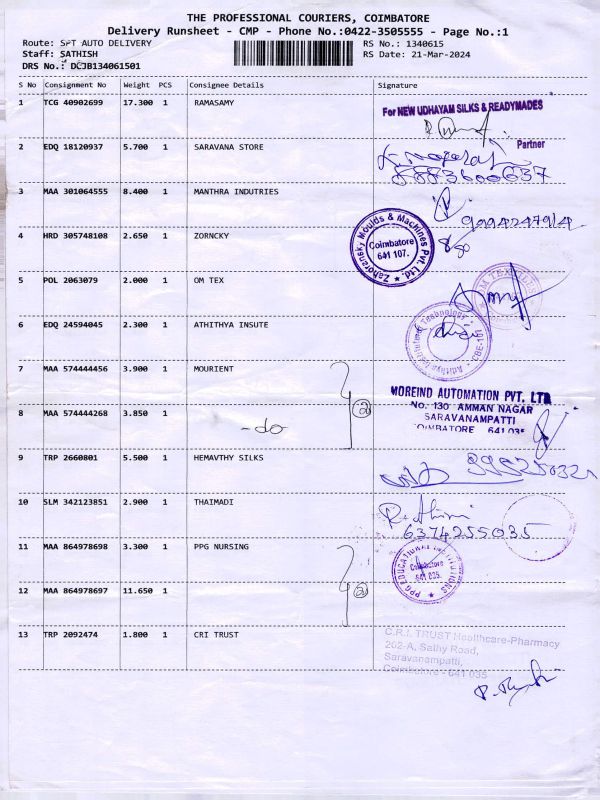 THE PROFESSIONAL COURIERS, COIMBATORE
Delivery Runsheet - CMP - Phone No.:0422-3505555 - Page No.:1
Route: SPT AUTO DELIVERY
RS No.: 1340615
Staff: SATHISH
RS Date: 21-Mar-2024
DRS No.: DCJB134061501
S No Consignment No Weight PCS Consignee Details Signature
1 TCG 40902699 17.300 1 RAMASAMY
For NEW UDHAYAM SILKS & READYMADES
Partner
2 EDQ 18120937 5.700 1 SARAVANA STORE
8883600637
3 MAA 301064555 8.400 1 MANTHRA INDUTRIES
4 HRD 305748108 2.650 1 ZORNCKY
Zahoransky Moulds & Machines Pvt. Ltd.
Coimbatore
641 107.
5 POL 2063079 2.000 1 OM TEX
OM TEXTILES
6 EDQ 24594045 2.300 1 ATHITHYA INSUTE
Adithya Institute of Technology
CBE-107
7 MAA 574444456 3.900 1 MOURIENT
2
MOREIND AUTOMATION PVT. LTD
No. 130 AMMAN NAGAR
SARAVANAMPATTI
COIMBATORE 641 035
8 MAA 574444268 3.850 1
-do
9 TRP 2660801 5.500 1 HEMAVTHY SILKS
10 SLM 342123851 2.900 1 THAIMADI
6374255035
11 MAA 864978698 3.300 1 PPG NURSING
2
PPG EDUCATIONAL INSTITUTIONS
Coimbatore
641 035.
12 MAA 864978697 11.650 1
13 TRP 2092474 1.800 1 CRI TRUST
C.R.I. TRUST Healthcare-Pharmacy
202-A, Sathy Road,
Saravanampatti,
Coimbatore - 641 035